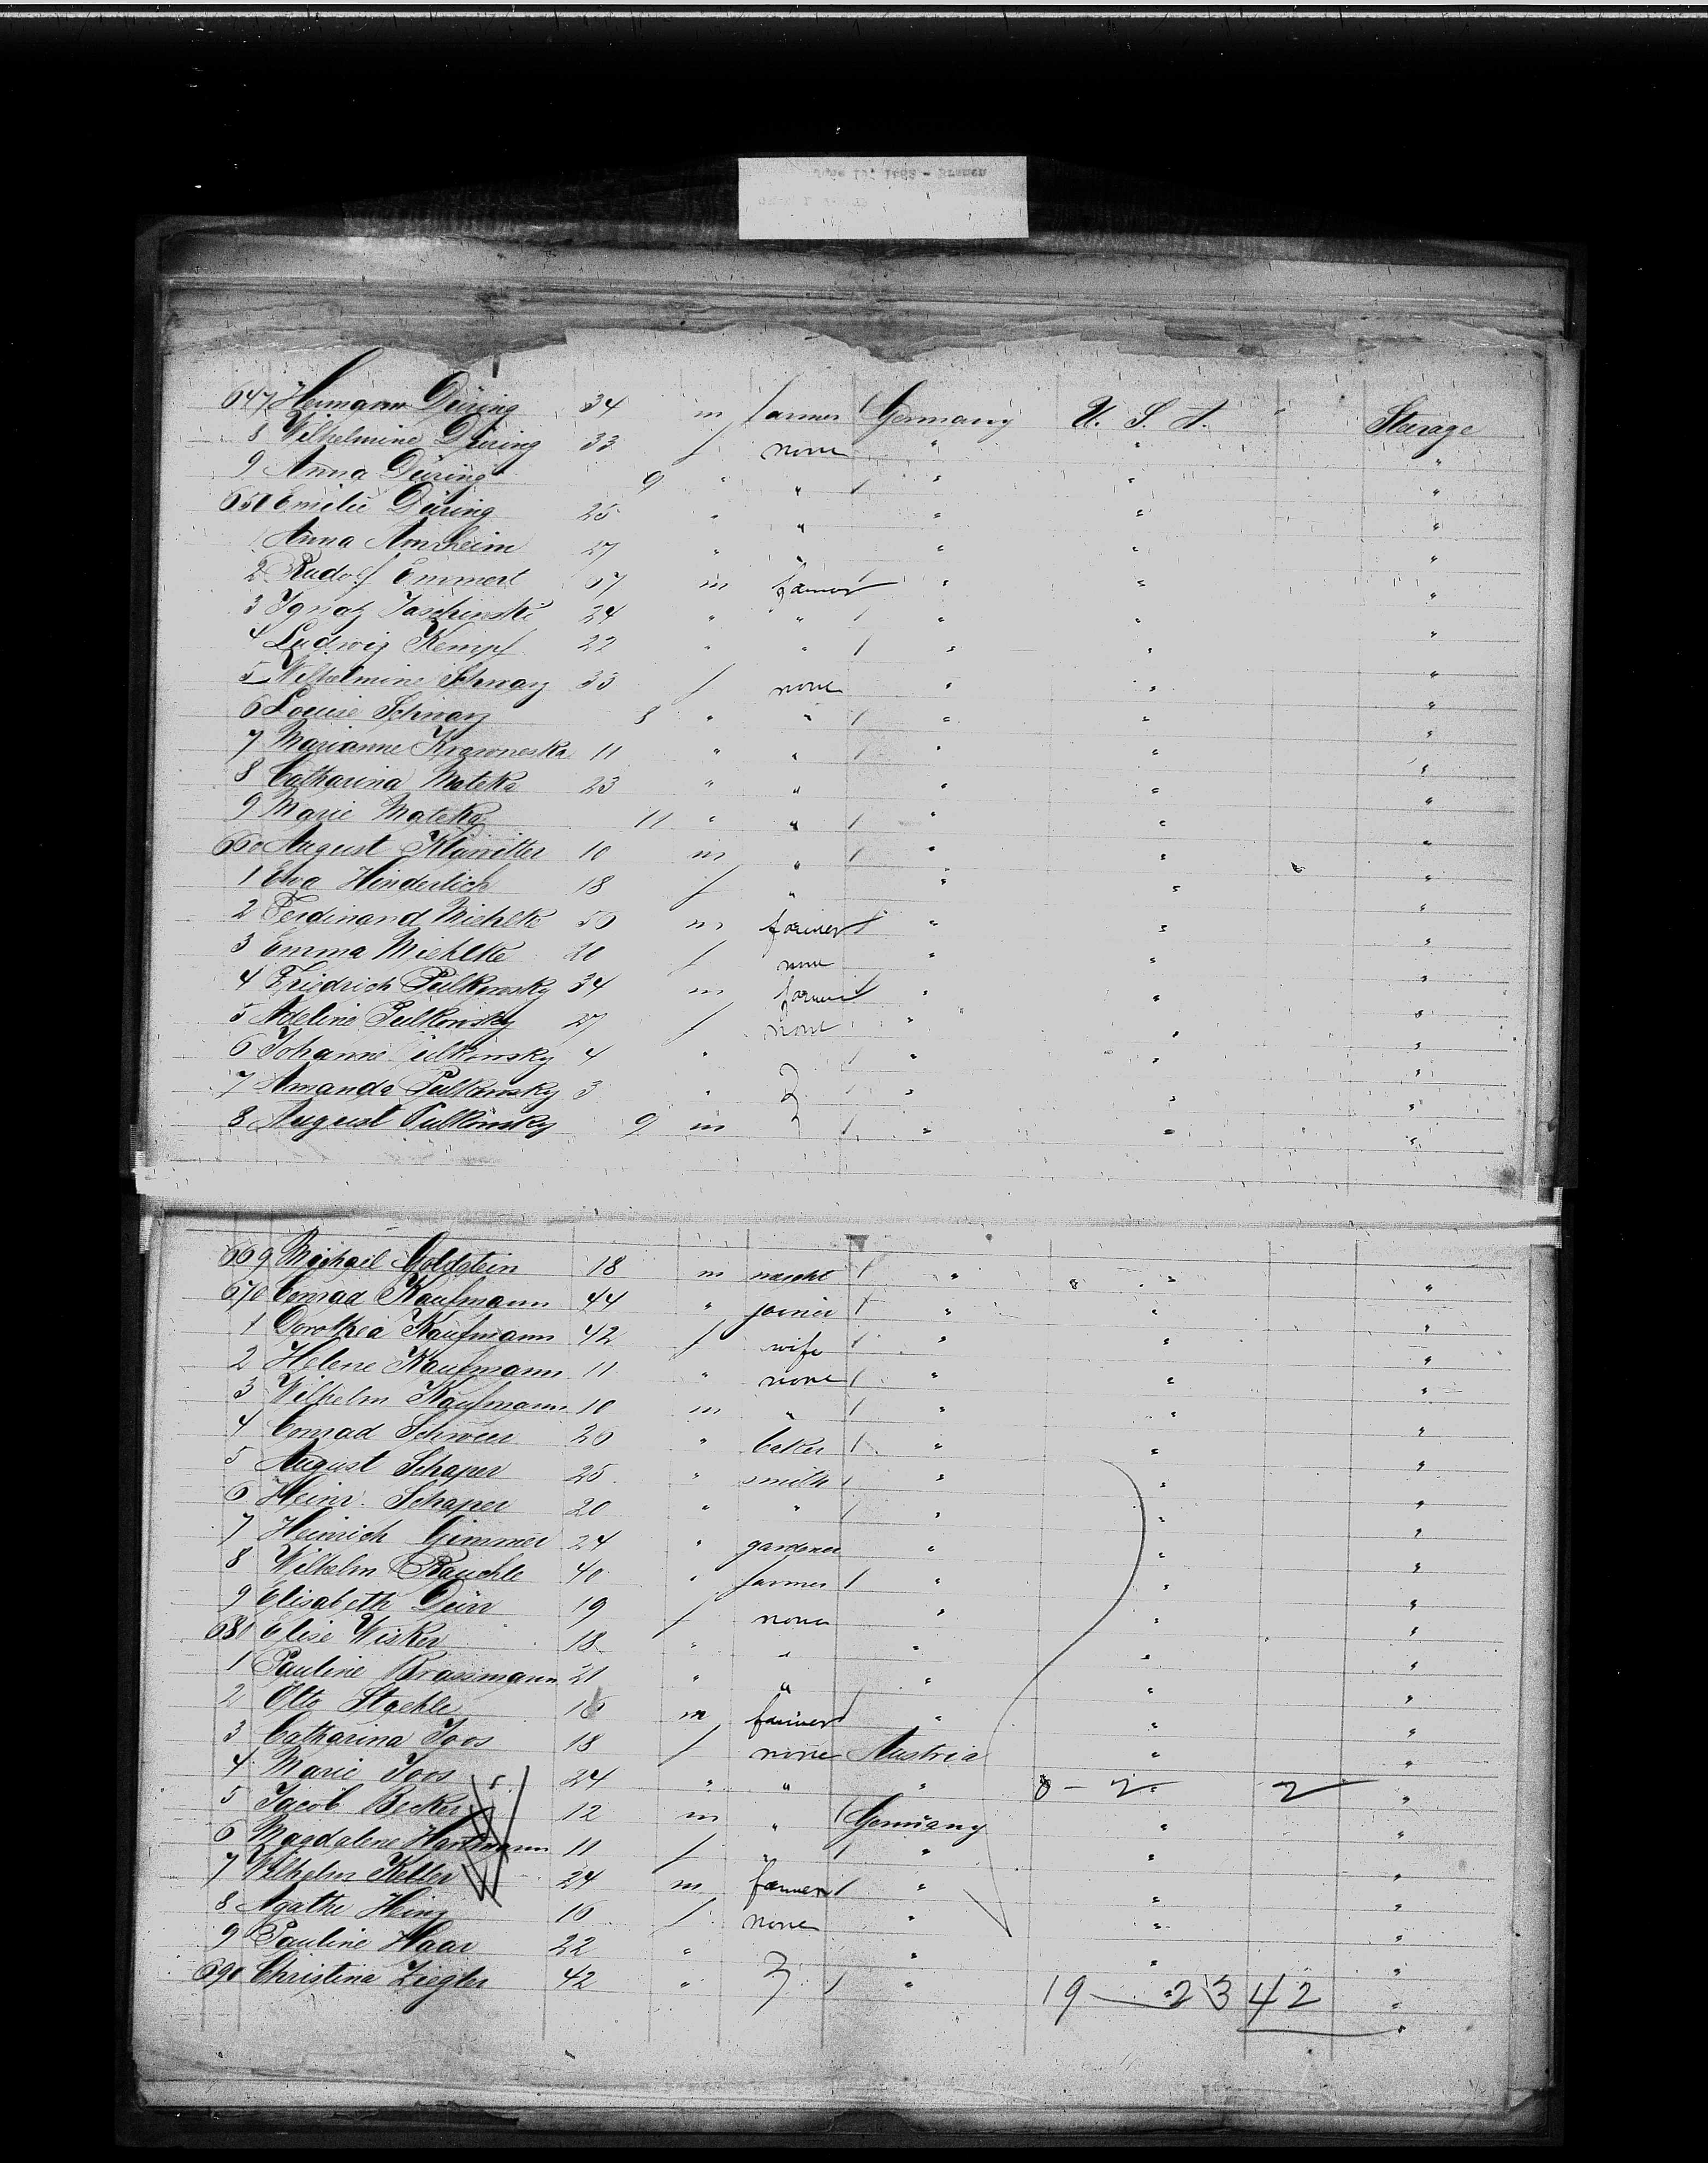 647 Hermann Düring 34 m farmer Germany U. S. A. Steerage
8 Wilhelmine Düring 33 f none " " "
9 Anna Düring 9 " " " " "
650 Emilie Düring 25 " " " " "
1 Anna Amrheim 27 " " " " "
2 Rudolf Emmerl 67 m farmer " " "
3 Ignatz Jaschinski 24 " " " " "
4 Ludwig Kempf 22 " " " " "
5 Wilhelmine Schwarz 33 f none " " "
6 Louise Schwarz 8 " " " " "
7 Marianne 11 " " " " "
8 Catharina Mateka 23 " " " " "
9 Marie Mateka 11 " " " " "
660 August Klawitter 10 m " " " "
1 Eva Hinderlich 18 f " " " "
2 Ferdinand Miehlke 50 m farmer " " "
3 Emma Miehlke 20 f none " " "
4 Friedrich Pulkowsky 34 m farmer " " "
5 Adeline Pulkowsky 27 f none " " "
6 Johanne Pulkowsky 4 " " " "
7 Amanda Pulkowsky 3 " " " "
8 August Pulkowsky 9 m " " "
669 Michael Goldstein 18 m " " "
670 Conrad Kaufmann 44 " joiner " " "
1 Dorothea Kaufmann 42 f wife " " "
2 Helene Kaufmann 11 " none " " "
3 Wilhelm Kaufmann 10 m " " " "
4 Conrad Schweer 20 " baker " " "
5 August Schaper 25 " smith " " "
6 Heinr. Schaper 20 " " " " "
7 Heinrich Gimmer 24 " gardener " " "
8 Wilhelm Rauchle 40 " farmer " " "
9 Elisabeth Dürr 19 f none " " "
680 Elise Wisker 18 " " " " "
1 Pauline Brassmann 21 " " " " "
2 Otto Staehle 16 m farmer " " "
3 Catharina Joos 18 f none Austria " "
4 Marie Joos 24 " " " 8 - 2 " 2 "
5 Jacob Becker 12 m " Germany " "
6 Magdalene Hartmann 11 f " " " "
7 Wilhelm Keller 24 m farmer " " "
8 Agathe Heinz 16 f none " " "
9 Pauline Haar 22 " " " "
690 Christina Ziegler 42 " " 19 — 23 42 "